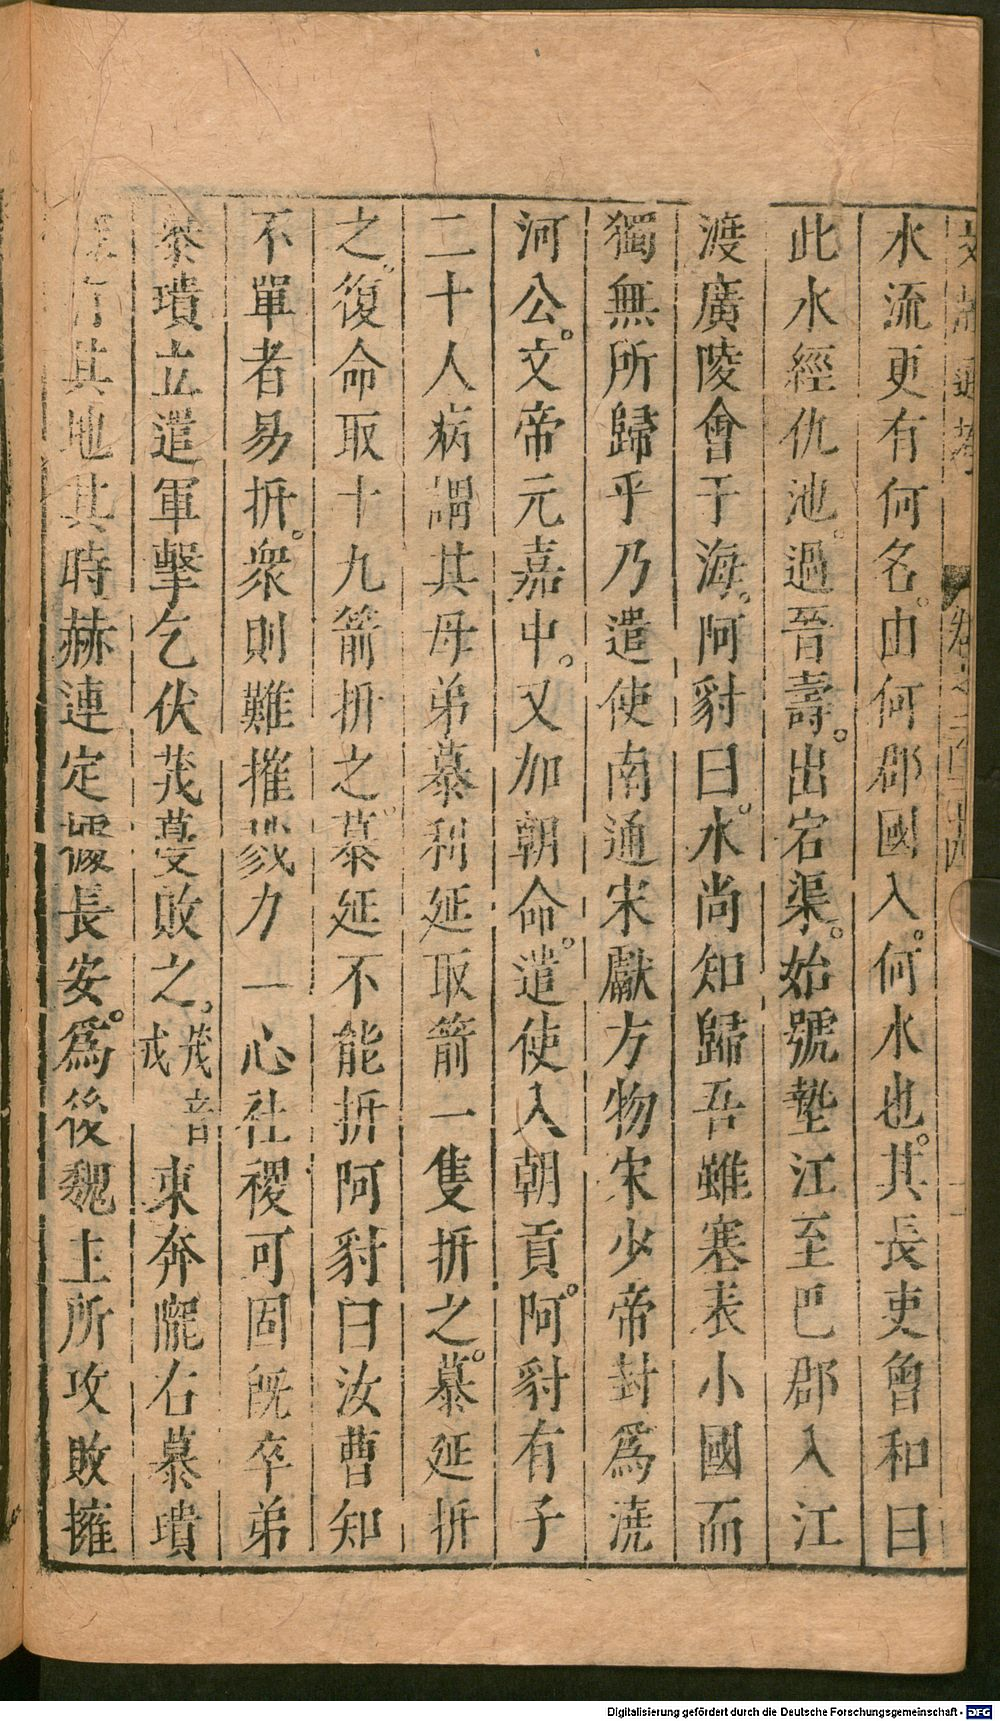 文獻通考 卷之三百三十四
水流更有何名。由何郡國入。何水也。其長吏曾和曰
此水經仇池。過晉壽。出宕渠。始號墊江至巴郡入江
渡廣陵會于海。阿豺曰。水尚知歸吾雖塞表小國而
獨無所歸乎乃遣使南通宋獻方物宋少帝封爲澆
河公。文帝元嘉中。又加朝命。遣使入朝貢。阿豺有子
二十人病謂其母弟慕利延取箭一隻折之。慕延折
之。復命取十九箭折之。慕延不能折阿豺曰汝曹知
不單者易折。衆則難摧戮力一心社稷可固旣卒弟
慕璝立遣軍擊乞伏茂蔓敗之。茂音戎東奔隴右慕璝
其地其時赫連定據長安。爲後魏主所攻敗擁
Digitalisierung gefördert durch die Deutsche Forschungsgemeinschaft - DFG